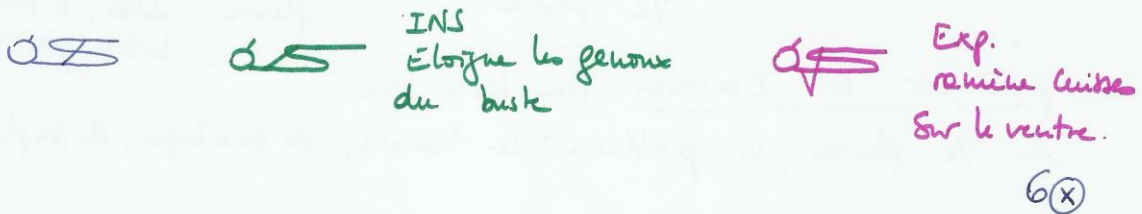 INS
Eloigne les genoux
du buste
Exp.
ramène Cuisses
sur le ventre.
6 x